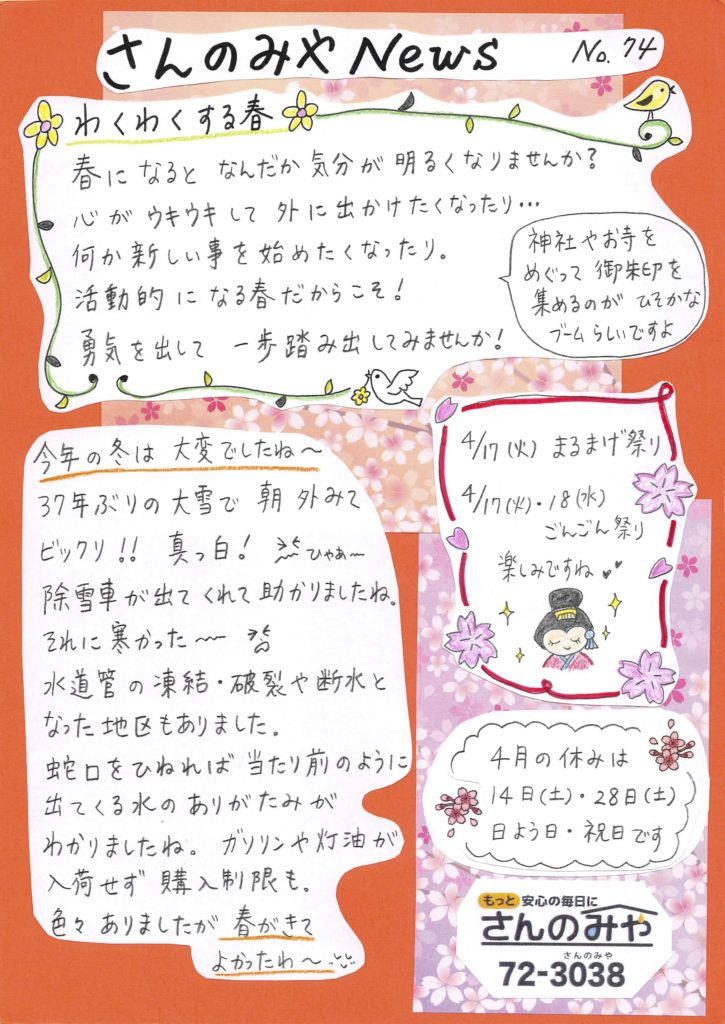 さんのみやNews No.74
わくわくする春
春になると なんだか気分が明るくなりませんか?
心がウキウキして 外に出かけたくなったり…
何か新しい事を始めたくなったり。
活動的になる春だからこそ!
勇気を出して 一歩踏み出してみませんか!
神社やお寺を
めぐって御朱印を
集めるのが ひそかな
ブームらしいですよ
今年の冬は 大変でしたね〜
37年ぶりの大雪で 朝 外みて
ビックリ!! 真っ白! ひゃあ〜
除雪車が出てくれて助かりましたね。
それに寒かった〜〜
水道管の凍結・破裂や断水と
なった地区もありました。
蛇口をひねれば 当たり前のように
出てくる水のありがたみが
わかりましたね。 ガソリンや灯油が
入荷せず 購入制限も。
色々ありましたが 春がきて
よかったわ〜
4/17(火) まるまげ祭り
4/17(火)・18(水)
ごんごん祭り
楽しみですね
4月の休みは
14日(土)・28日(土)
日よう日・祝日です
もっと 安心の毎日に
さんのみや
さんのみや
72-3038